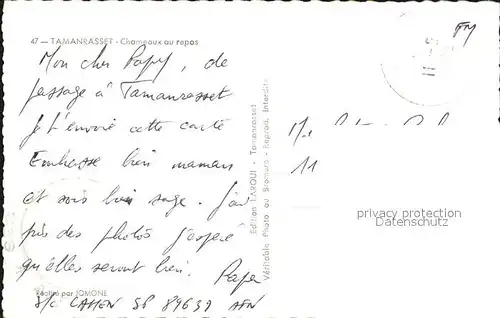 47 — TAMANRASSET - Chameaux au repos
FM
Mon cher Papy, de
passage à Tamanrasset
je t'envoie cette carte
Embrasse bien maman
et sois bien sage. J'ai
pris des photos j'espère
qu'elles seront bien.
Papa
Réalisé par JOMONE
S/c CAHEN SP 89639 AFN
Edition LAROUI - Tamanrasset
Véritable Photo au Bromure - Reprod. Interdite
11
privacy protection
Datenschutz